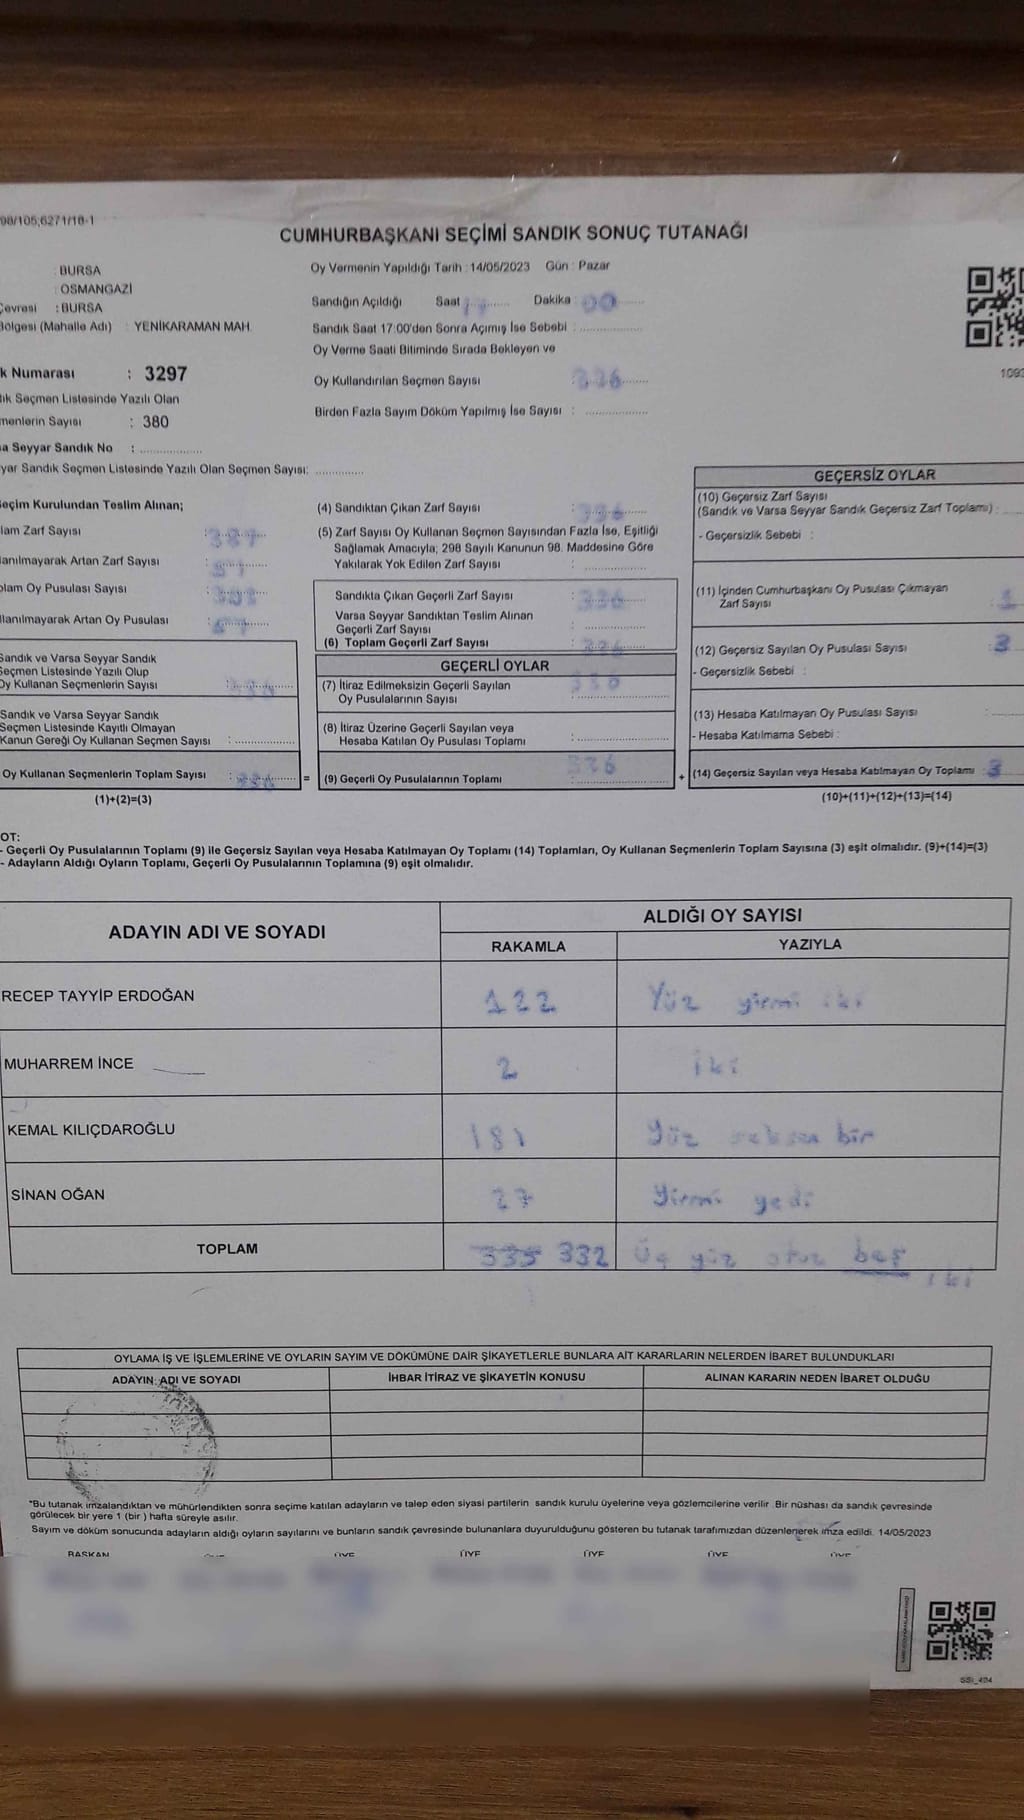 98/105,6271/18-1
CUMHURBAŞKANI SEÇİMİ SANDIK SONUÇ TUTANAĞI
: BURSA
: OSMANGAZİ
Çevresi : BURSA
Bölgesi (Mahalle Adı) : YENİKARAMAN MAH.
k Numarası : 3297
ık Seçmen Listesinde Yazılı Olan
menlerin Sayısı : 380
sa Seyyar Sandık No :
yar Sandık Seçmen Listesinde Yazılı Olan Seçmen Sayısı:
Oy Vermenin Yapıldığı Tarih : 14/05/2023 Gün : Pazar
Sandığın Açıldığı Saat 17 Dakika : 00
Sandık Saat 17:00'den Sonra Açımış İse Sebebi :
Oy Verme Saati Bitiminde Sırada Bekleyen ve
Oy Kullandırılan Seçmen Sayısı : 336
Birden Fazla Sayım Döküm Yapılmış İse Sayısı :
1093
eçim Kurulundan Teslim Alınan;
lam Zarf Sayısı : 387
lanılmayarak Artan Zarf Sayısı :
plam Oy Pusulası Sayısı :
llanılmayarak Artan Oy Pusulası :
Sandık ve Varsa Seyyar Sandık
Seçmen Listesinde Yazılı Olup
Oy Kullanan Seçmenlerin Sayısı : 336
Sandık ve Varsa Seyyar Sandık
Seçmen Listesinde Kayıtlı Olmayan
Kanun Gereği Oy Kullanan Seçmen Sayısı :
Oy Kullanan Seçmenlerin Toplam Sayısı : 336
(1)+(2)=(3)
(4) Sandıktan Çıkan Zarf Sayısı : 336
(5) Zarf Sayısı Oy Kullanan Seçmen Sayısından Fazla İse, Eşitliği
Sağlamak Amacıyla; 298 Sayılı Kanunun 98. Maddesine Göre
Yakılarak Yok Edilen Zarf Sayısı :
Sandıkta Çıkan Geçerli Zarf Sayısı : 336
Varsa Seyyar Sandıktan Teslim Alınan
Geçerli Zarf Sayısı :
(6) Toplam Geçerli Zarf Sayısı : 336
GEÇERLİ OYLAR
(7) İtiraz Edilmeksizin Geçerli Sayılan
Oy Pusulalarının Sayısı :
(8) İtiraz Üzerine Geçerli Sayılan veya
Hesaba Katılan Oy Pusulası Toplamı :
= (9) Geçerli Oy Pusulalarının Toplamı : 336
GEÇERSİZ OYLAR
(10) Geçersiz Zarf Sayısı
(Sandık ve Varsa Seyyar Sandık Geçersiz Zarf Toplamı) :
- Geçersizlik Sebebi :
(11) İçinden Cumhurbaşkanı Oy Pusulası Çıkmayan
Zarf Sayısı : 1
(12) Geçersiz Sayılan Oy Pusulası Sayısı : 3
- Geçersizlik Sebebi :
(13) Hesaba Katılmayan Oy Pusulası Sayısı :
- Hesaba Katılmama Sebebi :
+ (14) Geçersiz Sayılan veya Hesaba Katılmayan Oy Toplamı : 3
(10)+(11)+(12)+(13)=(14)
OT:
- Geçerli Oy Pusulalarının Toplamı (9) ile Geçersiz Sayılan veya Hesaba Katılmayan Oy Toplamı (14) Toplamları, Oy Kullanan Seçmenlerin Toplam Sayısına (3) eşit olmalıdır. (9)+(14)=(3)
- Adayların Aldığı Oyların Toplamı, Geçerli Oy Pusulalarının Toplamına (9) eşit olmalıdır.
ADAYIN ADI VE SOYADI
ALDIĞI OY SAYISI
RAKAMLA YAZIYLA
RECEP TAYYİP ERDOĞAN 122 Yüz yirmi iki
MUHARREM İNCE 2 iki
KEMAL KILIÇDAROĞLU 181 Yüz seksen bir
SİNAN OĞAN 27 Yirmi yedi
TOPLAM 335 332 Üç yüz otuz beş
iki
OYLAMA İŞ VE İŞLEMLERİNE VE OYLARIN SAYIM VE DÖKÜMÜNE DAİR ŞİKAYETLERLE BUNLARA AİT KARARLARIN NELERDEN İBARET BULUNDUKLARI
ADAYIN ADI VE SOYADI İHBAR İTİRAZ VE ŞİKAYETİN KONUSU ALINAN KARARIN NEDEN İBARET OLDUĞU
*Bu tutanak imzalandıktan ve mühürlendikten sonra seçime katılan adayların ve talep eden siyasi partilerin sandık kurulu üyelerine veya gözlemcilerine verilir. Bir nüshası da sandık çevresinde
görülecek bir yere 1 (bir) hafta süreyle asılır.
Sayım ve döküm sonucunda adayların aldığı oyların sayılarını ve bunların sandık çevresinde bulunanlara duyurulduğunu gösteren bu tutanak tarafımızdan düzenlenerek imza edildi. 14/05/2023
BAŞKAN ÜYE ÜYE ÜYE ÜYE ÜYE